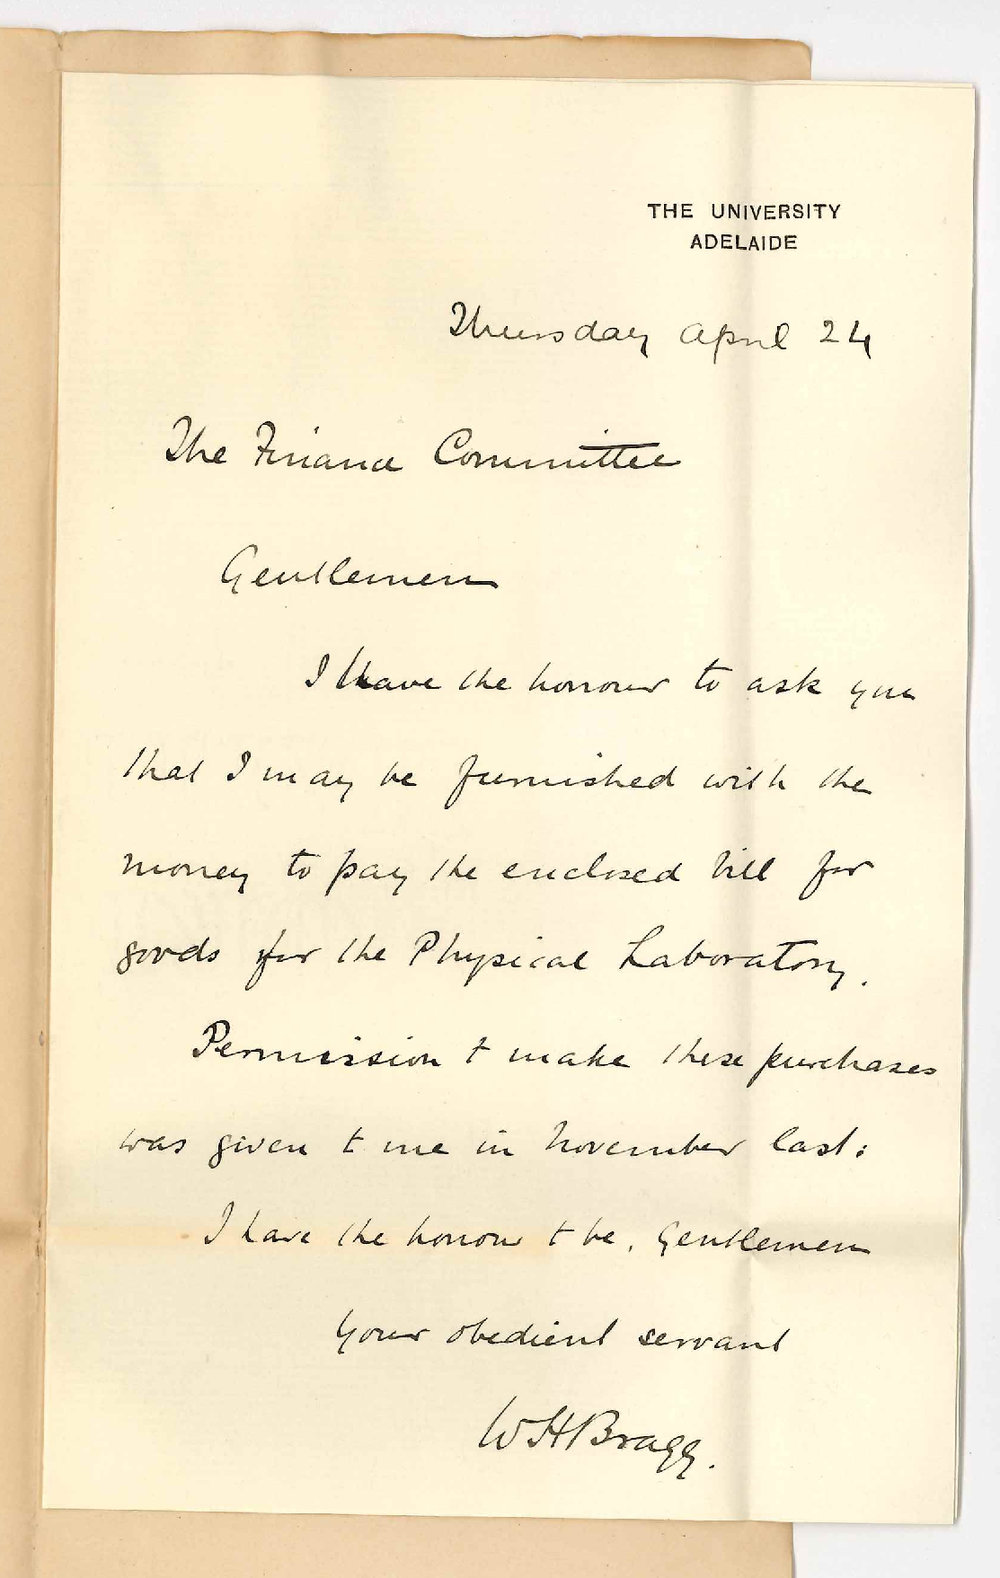 THE UNIVERSITY
ADELAIDE
Thursday April 24
The Finance Committee
Gentlemen
I have the honour to ask you
that I may be furnished with the
money to pay the enclosed bill for
goods for the Physical Laboratory.
Permission t make these purchases
was given t me in November last:
I have the honour t be, Gentlemen
Your obedient servant
WHBragg.